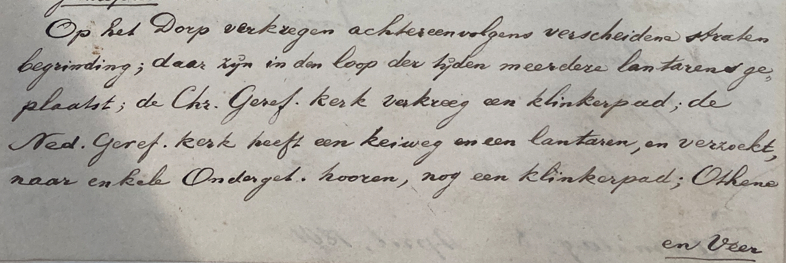 Op het Dorp verkregen achtereenvolgens verscheidene straten
begrinding; daar zijn in den loop der tijden meerdere lantarens ge-
plaatst; de Chr. Geref. kerk verkreeg een klinkerpad; de
Ned. Geref. kerk heeft een keiweg en een lantaren, en verzoekt,
naar enkele Onderget. hooren, nog een klinkerpad; Othene
en Veer